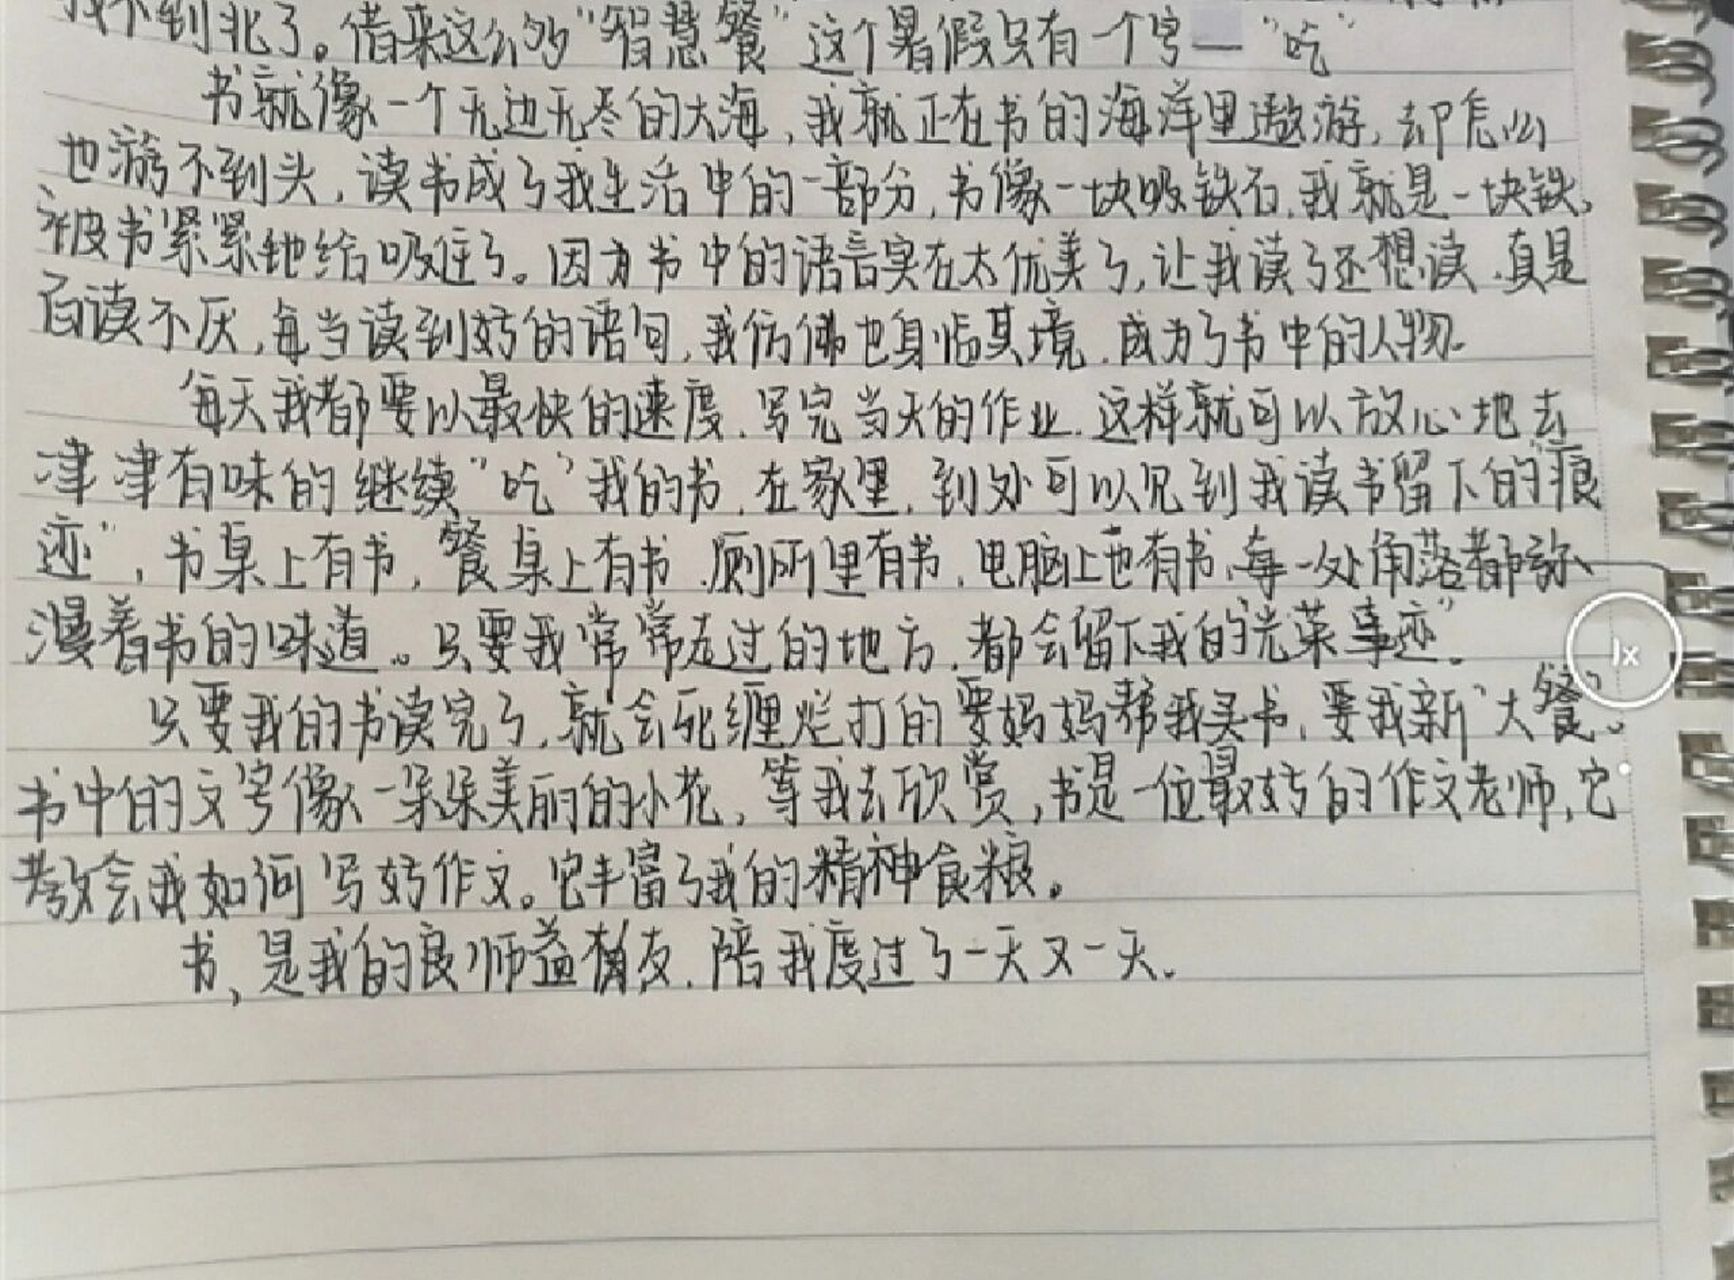 找不到北了。借来这么多“智慧餐”这个暑假只有一个字—“吃”
书就像一个无边无尽的大海，我就正在书的海洋里遨游，却怎么
也游不到头，读书成了我生活中的一部分，书像一块吸铁石，我就是一块铁，
被书紧紧地给吸住了。因为书中的语言实在太优美了，让我读了还想读，真是
百读不厌，每当读到好的语句，我仿佛也身临其境，成为了书中的人物。
每天我都要以最快的速度，写完当天的作业，这样就可以放心地去
津津有味的继续“吃”我的书，在家里，到处可以见到我读书留下的“痕
迹”，书桌上有书，餐桌上有书，厕所里有书，电脑上也有书，每一处角落都弥
漫着书的味道。只要我常常走过的地方，都会留下我的“光荣事迹”。
只要我的书读完了，就会死缠烂打的要妈妈帮我买书，要我新“大餐”。
书中的文字像一朵朵美丽的小花，等我去欣赏，书是一位最好的作文老师，它
教会我如何写好作文。它丰富了我的精神食粮。
书，是我的良师益友，陪我度过了一天又一天。
1x